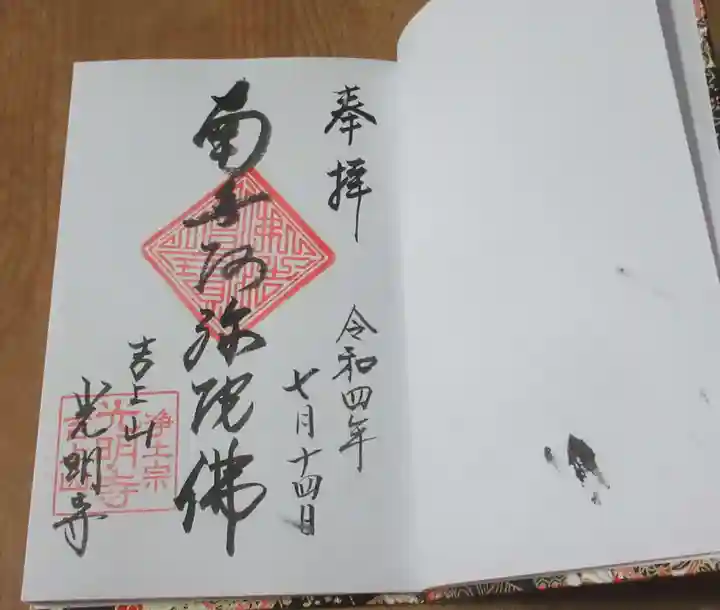 奉拝
令和四年
七月十四日
南無阿弥陀佛
佛法僧寶
吉上山
光明寺
浄土宗
光明寺